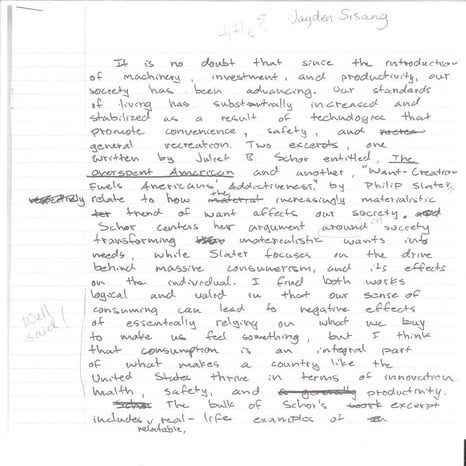 title?
Jayden Sisang
It is no doubt that since the introduction
of machinery, investment, and productivity, our
society has been advancing. Our standards
of living has substantially increased and
stabilized as a result of technologies that
promote convenience, safety, and
general recreation. Two excerpts, one
written by Juliet B. Schor entitled, The
Overspent American and another, "Want-Creation
Fuels Americans' Addictiveness," by Philip Slater,
relate to how the increasingly materialistic
trend of want affects our society.
Schor centers her argument around on society
transforming materialistic wants into
needs, while Slater focuses on the drive
behind massive consumerism, and its effects
on the individual. I find both works
logical and valid in that our sense of
consuming can lead to negative effects
of essentially relying on what we buy
to make us feel something, but I think
that consumption is an integral part
of what makes a country like the
United States thrive in terms of innovation
health, safety, and productivity.
The bulk of Schor's excerpt
includes relatable, real-life examples of
Well said!